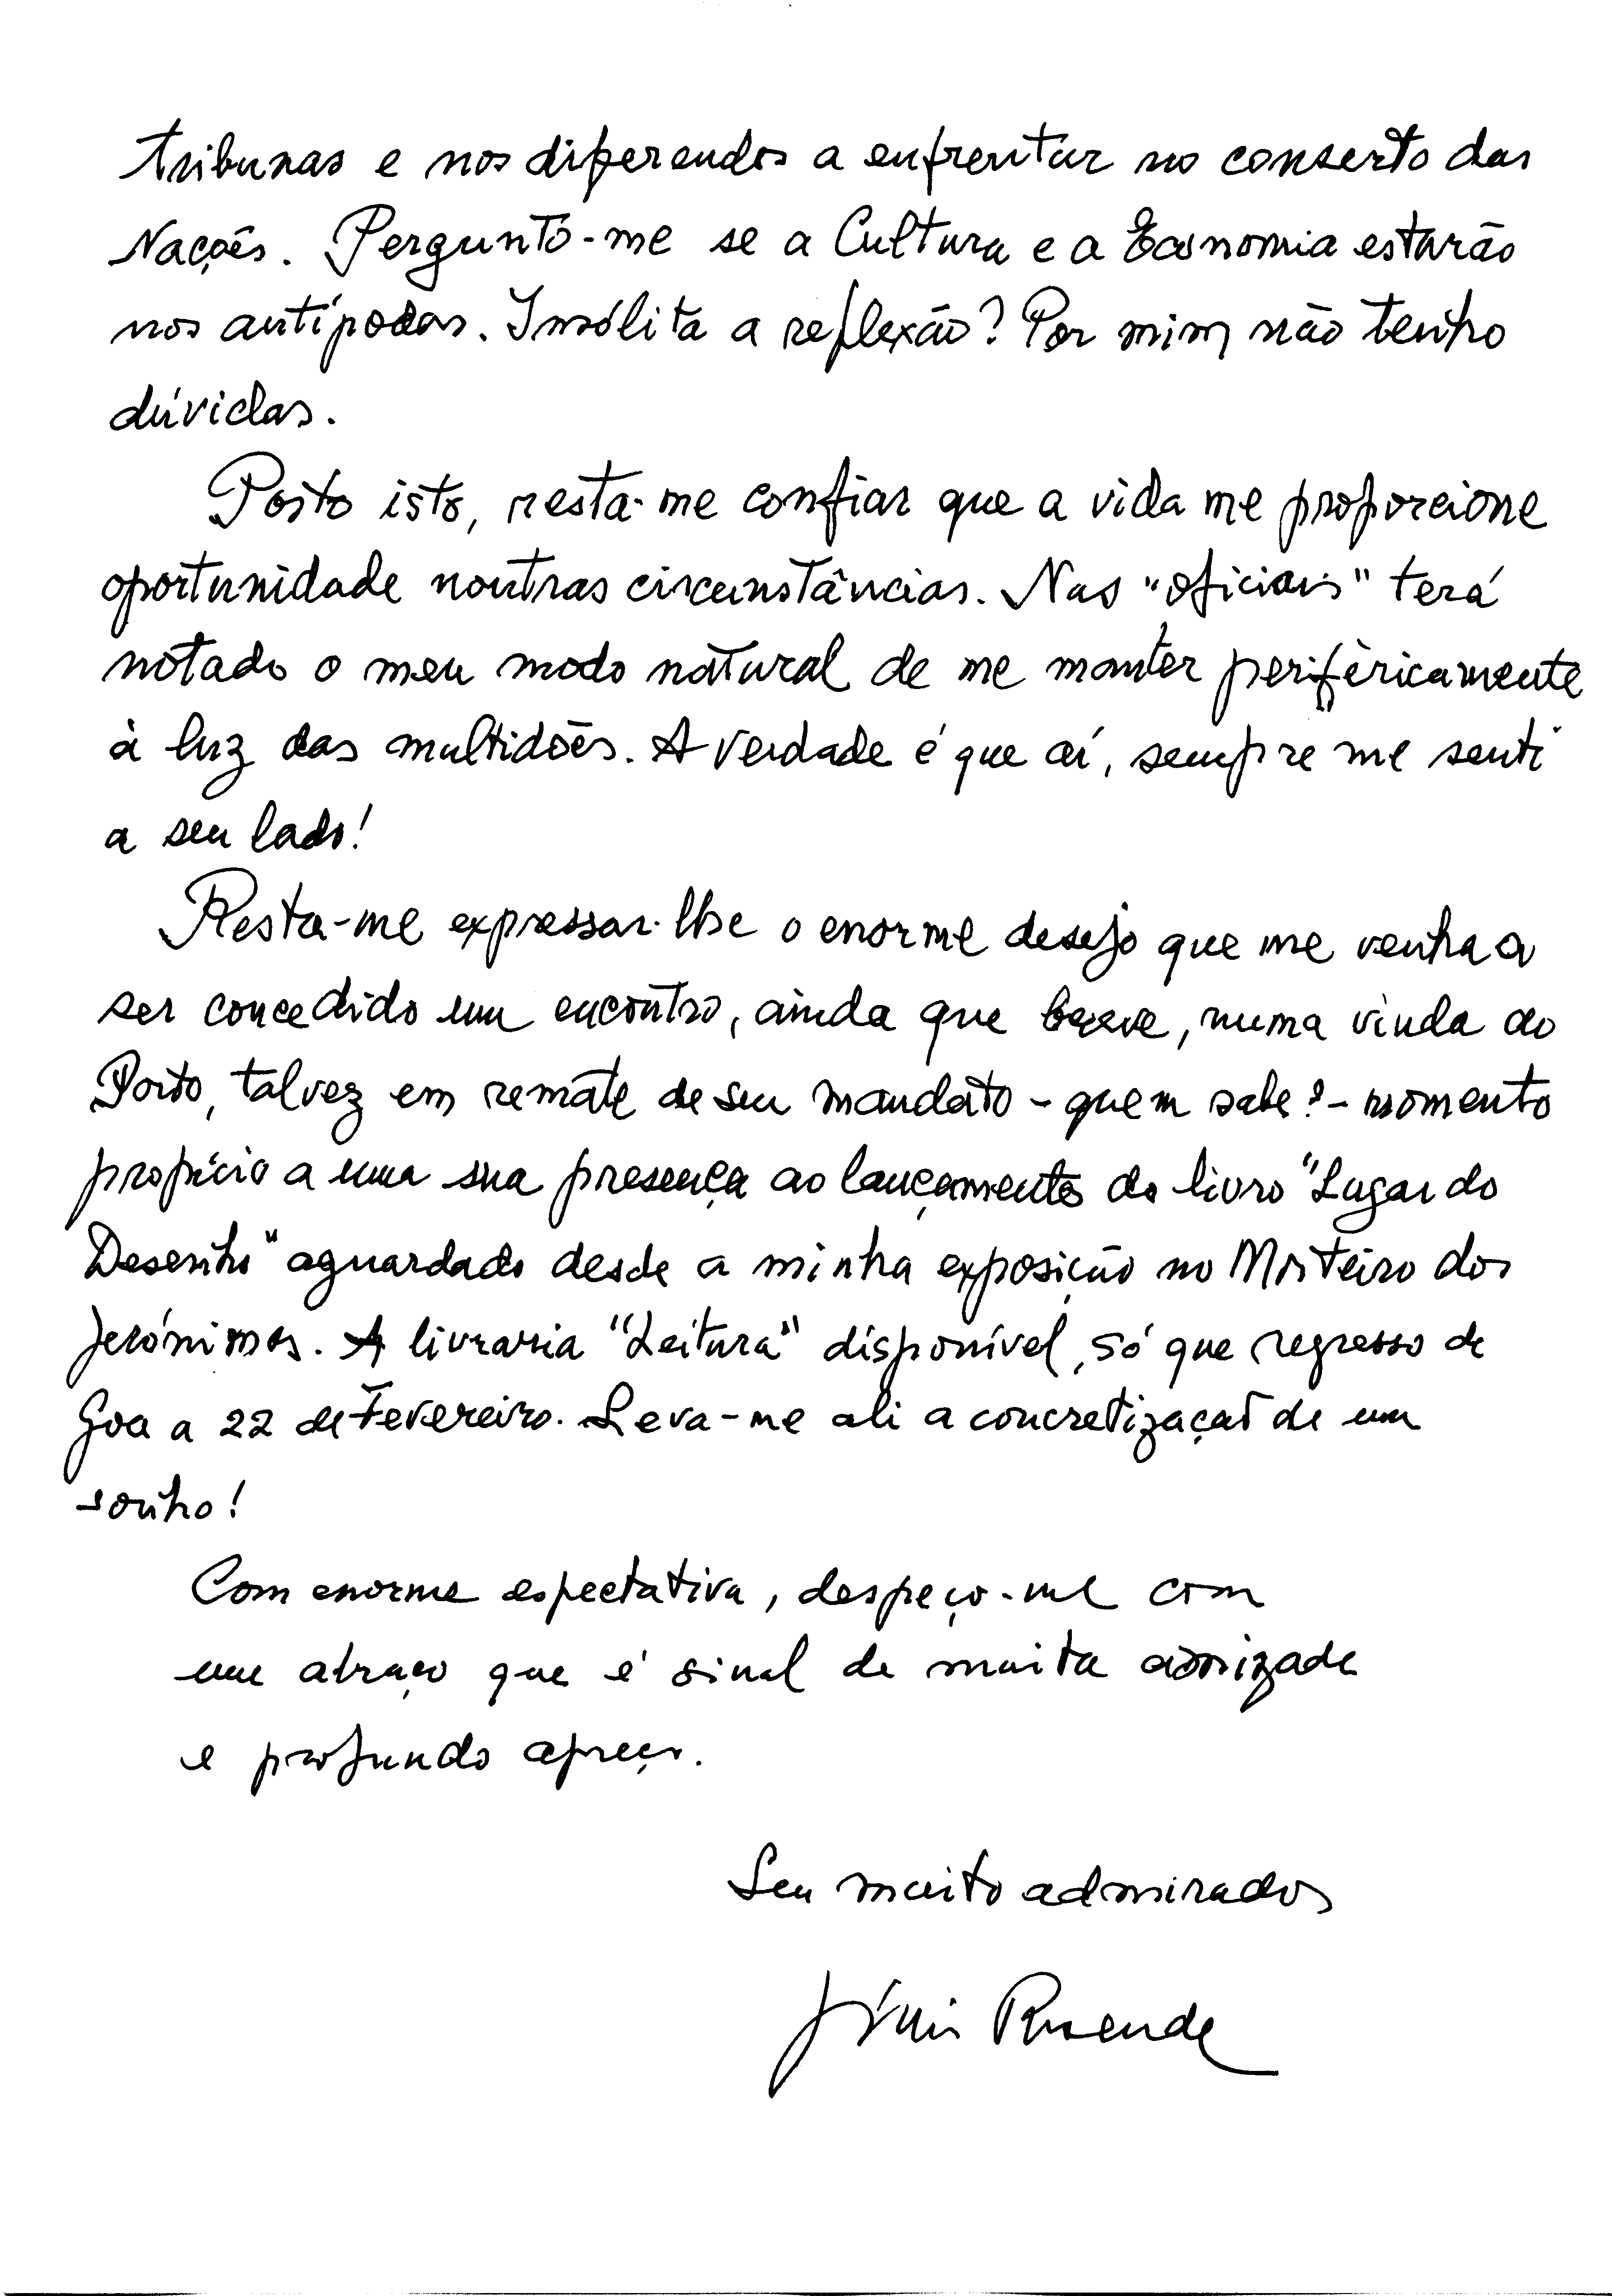 tribunas e nos diferendos a enfrentar no conserto das
Nações. Pergunto-me se a Cultura e a Economia estarão
nos antípodas. Insólita a reflexão? Por mim não tenho
dúvidas.
Posto isto, resta-me confiar que a vida me proporcione
oportunidade noutras circunstâncias. Nas "oficiais" terá
notado o meu modo natural de me manter perifèricamente
à luz das multidões. A verdade é que aí, sempre me senti
a seu lado!
Resta-me expressar-lhe o enorme desejo que me venha a
ser concedido um encontro, ainda que breve, numa vinda ao
Porto, talvez em remate de seu mandato - quem sabe? - momento
propício a uma sua presença ao lançamento do livro "Lugar do
Desenho" aguardado desde a minha exposição no Mosteiro dos
Jerónimos. A livraria "Leitura" disponível, só que regresso de
Goa a 22 de Fevereiro. Leva-me ali a concretização de um
sonho!
Com enorme espectativa, despeço-me com
um abraço que é sinal de muita amizade
e profundo apreço.
Seu muito admirador
Júlio Resende